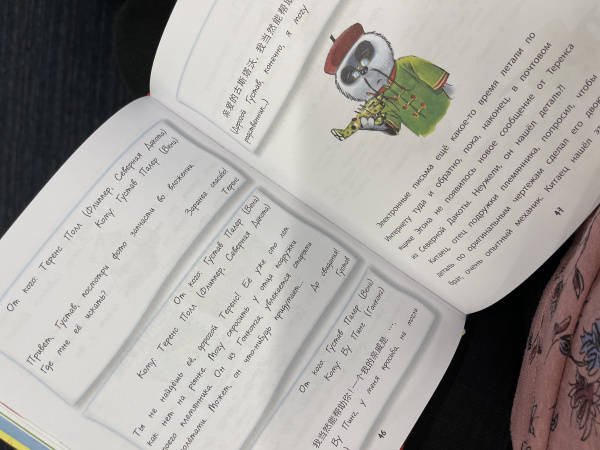 От кого: Теренс Полл (Флиппер, Северная Дакота)
Кому: Густав Палер (Вена)
Привет, Густав, посмотри фото запчасти во вложении.
Где мне её искать?
Заранее спасибо
Теренс
От кого: Густав Палер (Вена)
Кому: Теренс Полл (Флиппер, Северная Дакота)
Ты не найдёшь её, дорогой Теренс! Её уже сто лет
как нет на рынке. Могу спросить у отца подружки
моего племянника. Он из Гонконга, увлекается старыми
Может, он что-нибудь придумает...
До свидания!
Густав
От кого: Густав Палер (Вена)
Кому: Ву Пинг (Гонконг)
我当然能帮助你!一个我的亲戚是 ...,
Ву Пинг, у меня просьба не
46
亲爱的古斯塔沃,我当然能帮助
(Дорогой Густав, конечно, я могу
родственник...)
Электронные письма ещё какое-то время летали по
Интернету туда и обратно, пока, наконец, в почтовом
ящике Эгона не появилось новое сообщение от Теренса
из Северной Дакоты. Неужели, он нашёл деталь?!
Китаец, отец подружки племянника, попросил, чтобы
деталь по оригинальным чертежам сделал его двоюродный
брат, очень опытный механик. Китаец нашёл
47